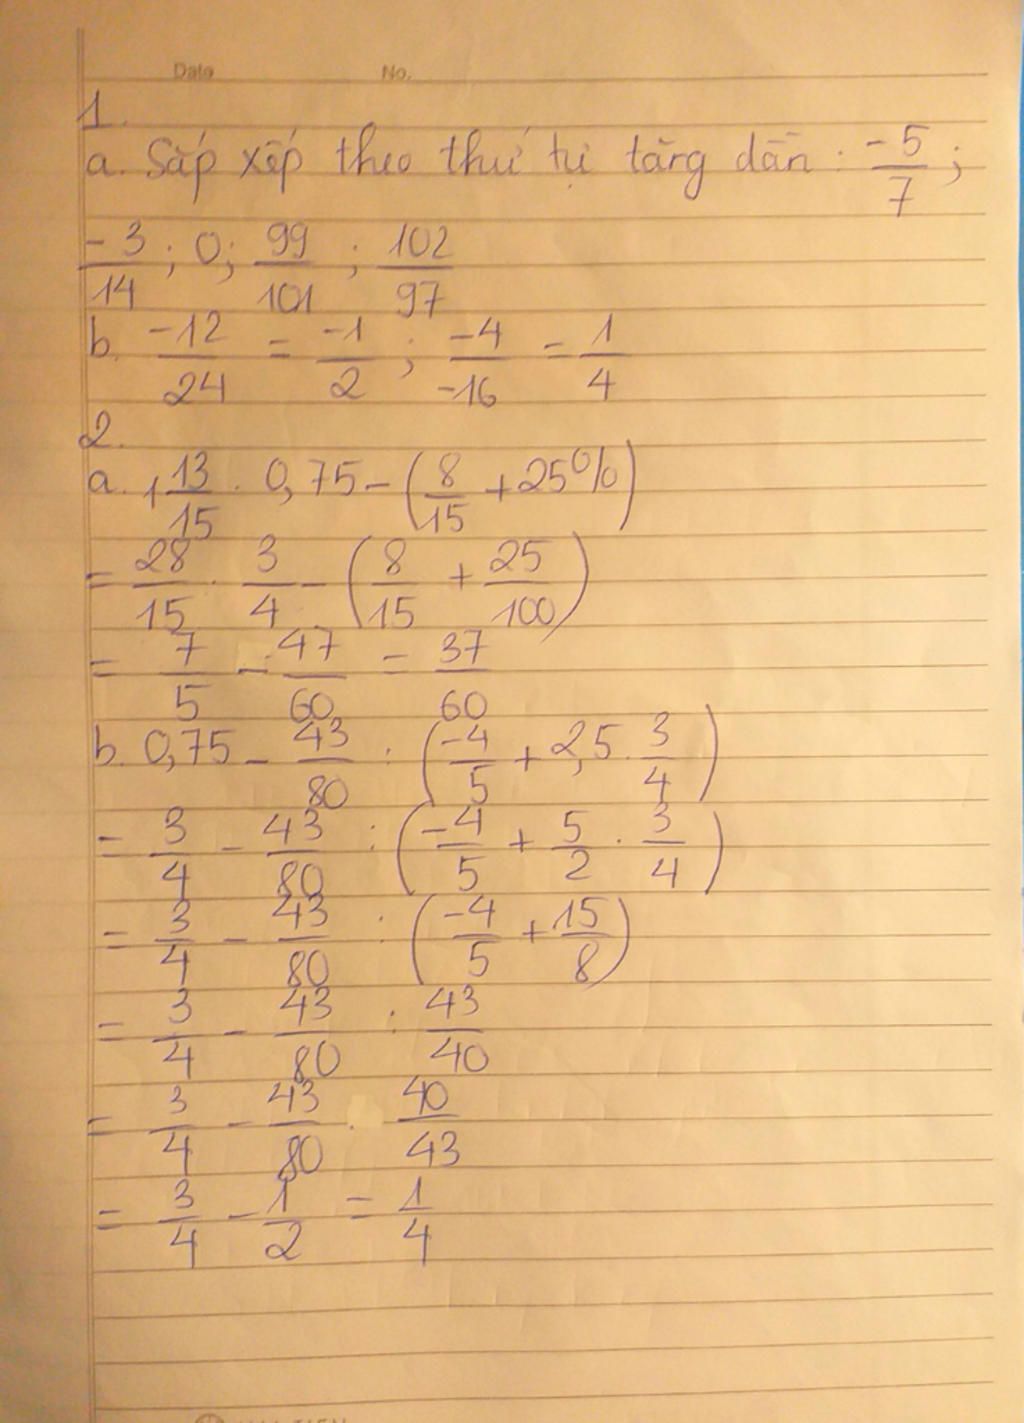 Date No.
1.
a. Sắp xếp theo thứ tự tăng dần : -5/7 ;
-3/14 ; 0 ; 99/101 ; 102/97
b. -12/24 = -1/2 ; -4/-16 = 1/4
2.
a. 1 13/15 . 0,75 - (8/15 + 25%)
= 28/15 . 3/4 - (8/15 + 25/100)
= 7/5 - 47/60 = 37/60
b. 0,75 - 43/80 : (-4/5 + 2,5 . 3/4)
= 3/4 - 43/80 : (-4/5 + 5/2 . 3/4)
= 3/4 - 43/80 : (-4/5 + 15/8)
= 3/4 - 43/80 : 43/40
= 3/4 - 43/80 . 40/43
= 3/4 - 1/2 = 1/4